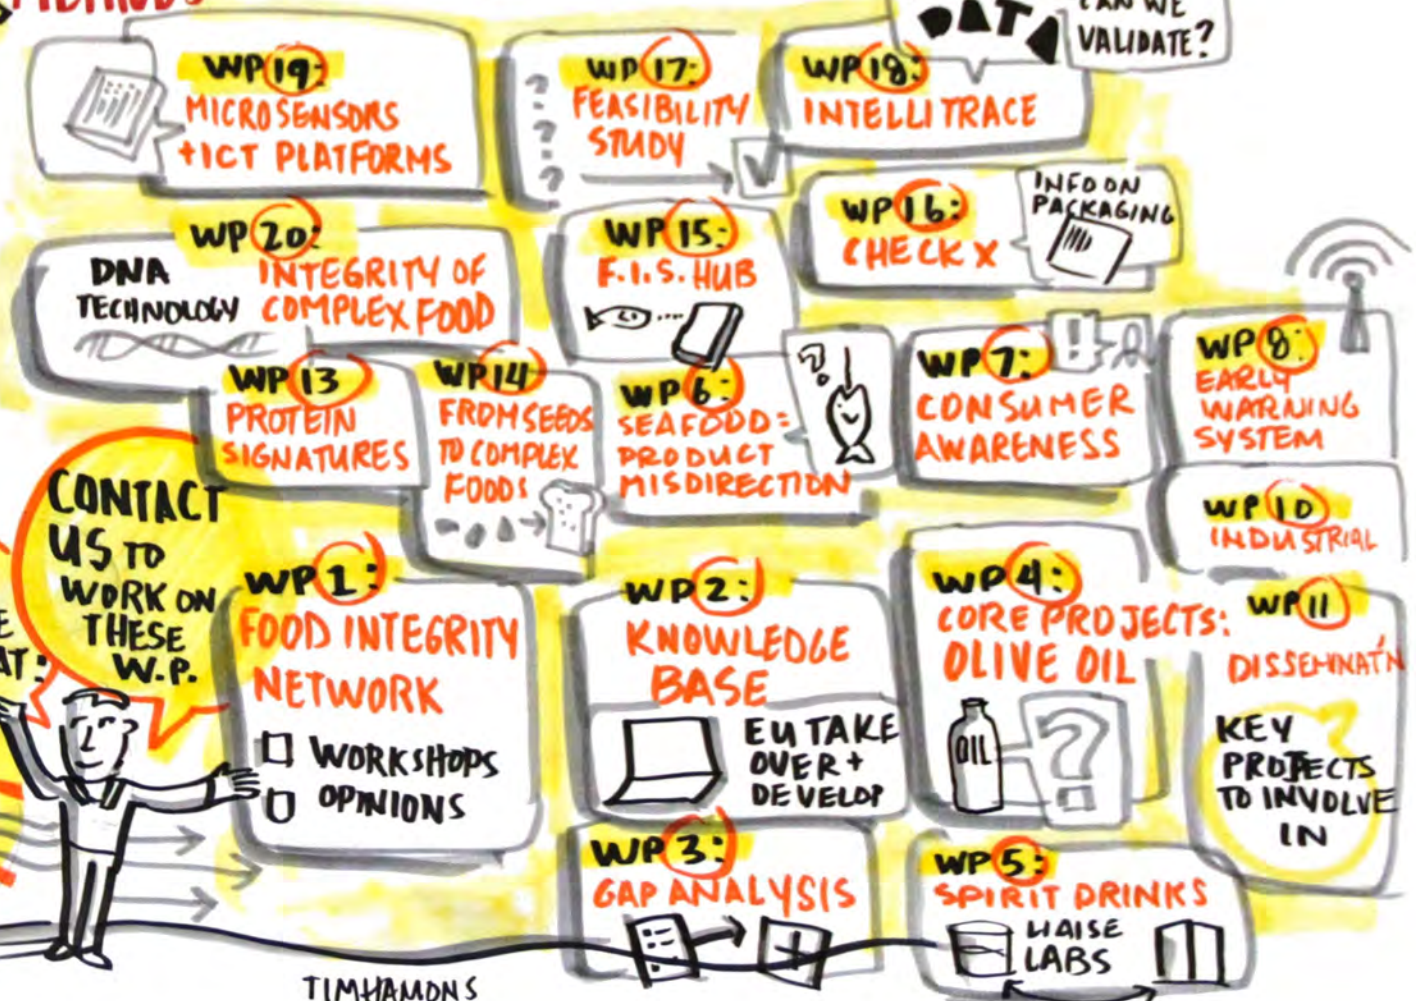 METHODS
DATA
CAN WE
VALIDATE?
WP 19:
MICROSENSORS
+ICT PLATFORMS
WP 17:
FEASIBILITY
STUDY
? ? ?
WP 18:
INTELLITRACE
WP 20:
DNA
TECHNOLOGY
INTEGRITY OF
COMPLEX FOOD
WP 15:
F.I.S. HUB
WP 16:
CHECK X
INFO ON
PACKAGING
WP 13
PROTEIN
SIGNATURES
WP 14
FROM SEEDS
TO COMPLEX
FOODS
WP 6:
SEAFOOD:
PRODUCT
MISDIRECTION
?
WP 7:
CONSUMER
AWARENESS
!
WP 8:
EARLY
WARNING
SYSTEM
WP 10
INDUSTRIAL
CONTACT
US TO
WORK ON
THESE
W.P.
AT:
WP 1:
FOOD INTEGRITY
NETWORK
WORKSHOPS
OPINIONS
WP 2:
KNOWLEDGE
BASE
EU TAKE
OVER +
DEVELOP
WP 4:
CORE PROJECTS:
OLIVE OIL
OIL
?
WP 11
DISSEMINAT'N
KEY
PROJECTS
TO INVOLVE
IN
WP 3:
GAP ANALYSIS
WP 5:
SPIRIT DRINKS
LIAISE
LABS
TIMHAMONS